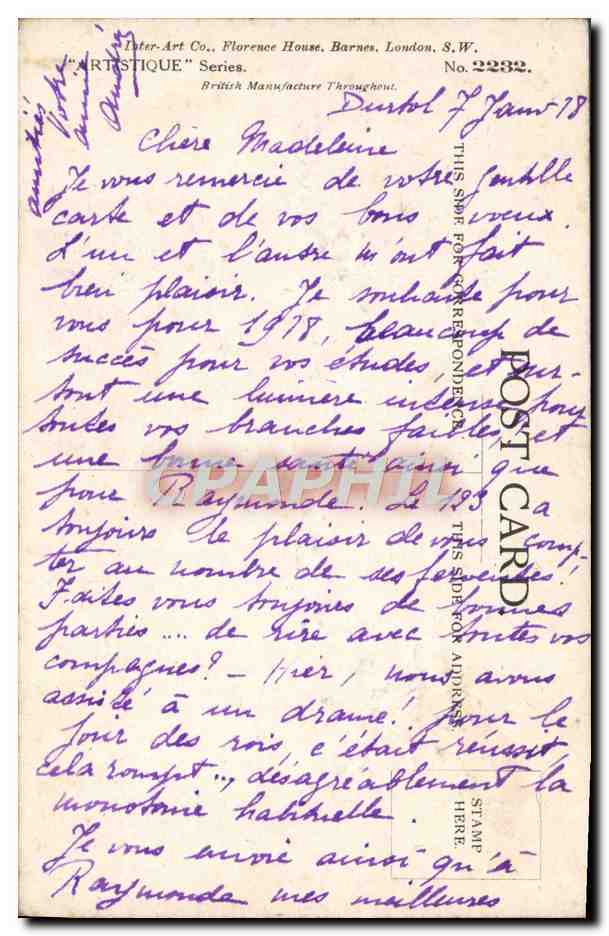 Inter-Art Co., Florence House, Barnes, London, S.W.
"ARTISTIQUE" Series. No. 2232.
British Manufacture Throughout.
Durtol 7 Janv 18
Chère Madeleine
Je vous remercie de votre gentille
carte et de vos bons voeux.
L'un et l'autre m'ont fait
bien plaisir. Je souhaite pour
vous pour 1918, beaucoup de
succès pour vos études, et sur-
tout une lumière intense pour
toutes vos branches faibles, et
une bonne santé ainsi que
pour Raymonde. Le 123 a
toujours le plaisir de vous comp-
ter au nombre de ses ferventes!
Faites vous toujours de bonnes
parties .... de rire avec toutes vos
compagnes? - Hier, nous avons
assisté à un drame! pour le
jour des rois, c'était réussit,
cela rompt .., désagréablement la
monotonie habituelle.
Je vous envoie ainsi qu'à
Raymonde mes meilleures
amitiés
Votre
amie
André
THIS SIDE FOR CORRESPONDENCE
THIS SIDE FOR ADDRESS
POST CARD
STAMP
HERE.
CPAPHIL